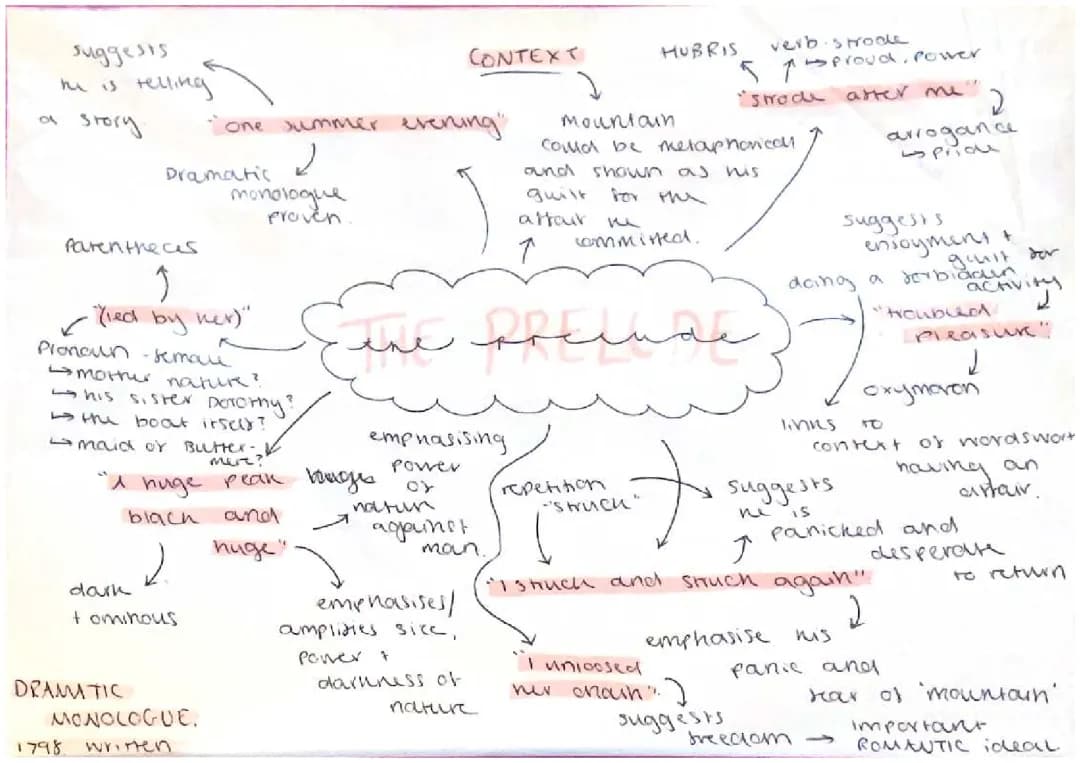 suggests
he is telling
a story.
"one summer evening"
Dramatic
monologue
proven.
CONTEXT
mountain
could be metaphorical
and shown as his
guilt for the
affair he
committed.
HUBRIS
verb-strode
↳ proud, power
"strode after me"
arrogance
↳ pride
suggests
enjoyment +
guilt for
doing a forbidden
activity
"troubled
pleasure"
oxymoron
links to
context of wordswort
having an
affair.
THE PRELUDE
the prelude
Parentheces
"(led by her)"
Pronoun - female
↳ mother nature?
↳ his sister Dorothy?
↳ the boat itself?
↳ maid of Butter-
mere?
"A huge peak
black and
huge"
emphasising
power
of
nature
against
man.
dark
+ ominous
emphasises/
amplifies size,
power +
darkness of
nature
repetition
"struck"
suggests
he is
panicked and
desperate
to return
"I struck and struck again"
emphasise his
panic and
fear of 'mountain'
"I unloosed
her chain".
suggests
freedom → important
ROMANTIC ideal
DRAMATIC
MONOLOGUE.
1798 written